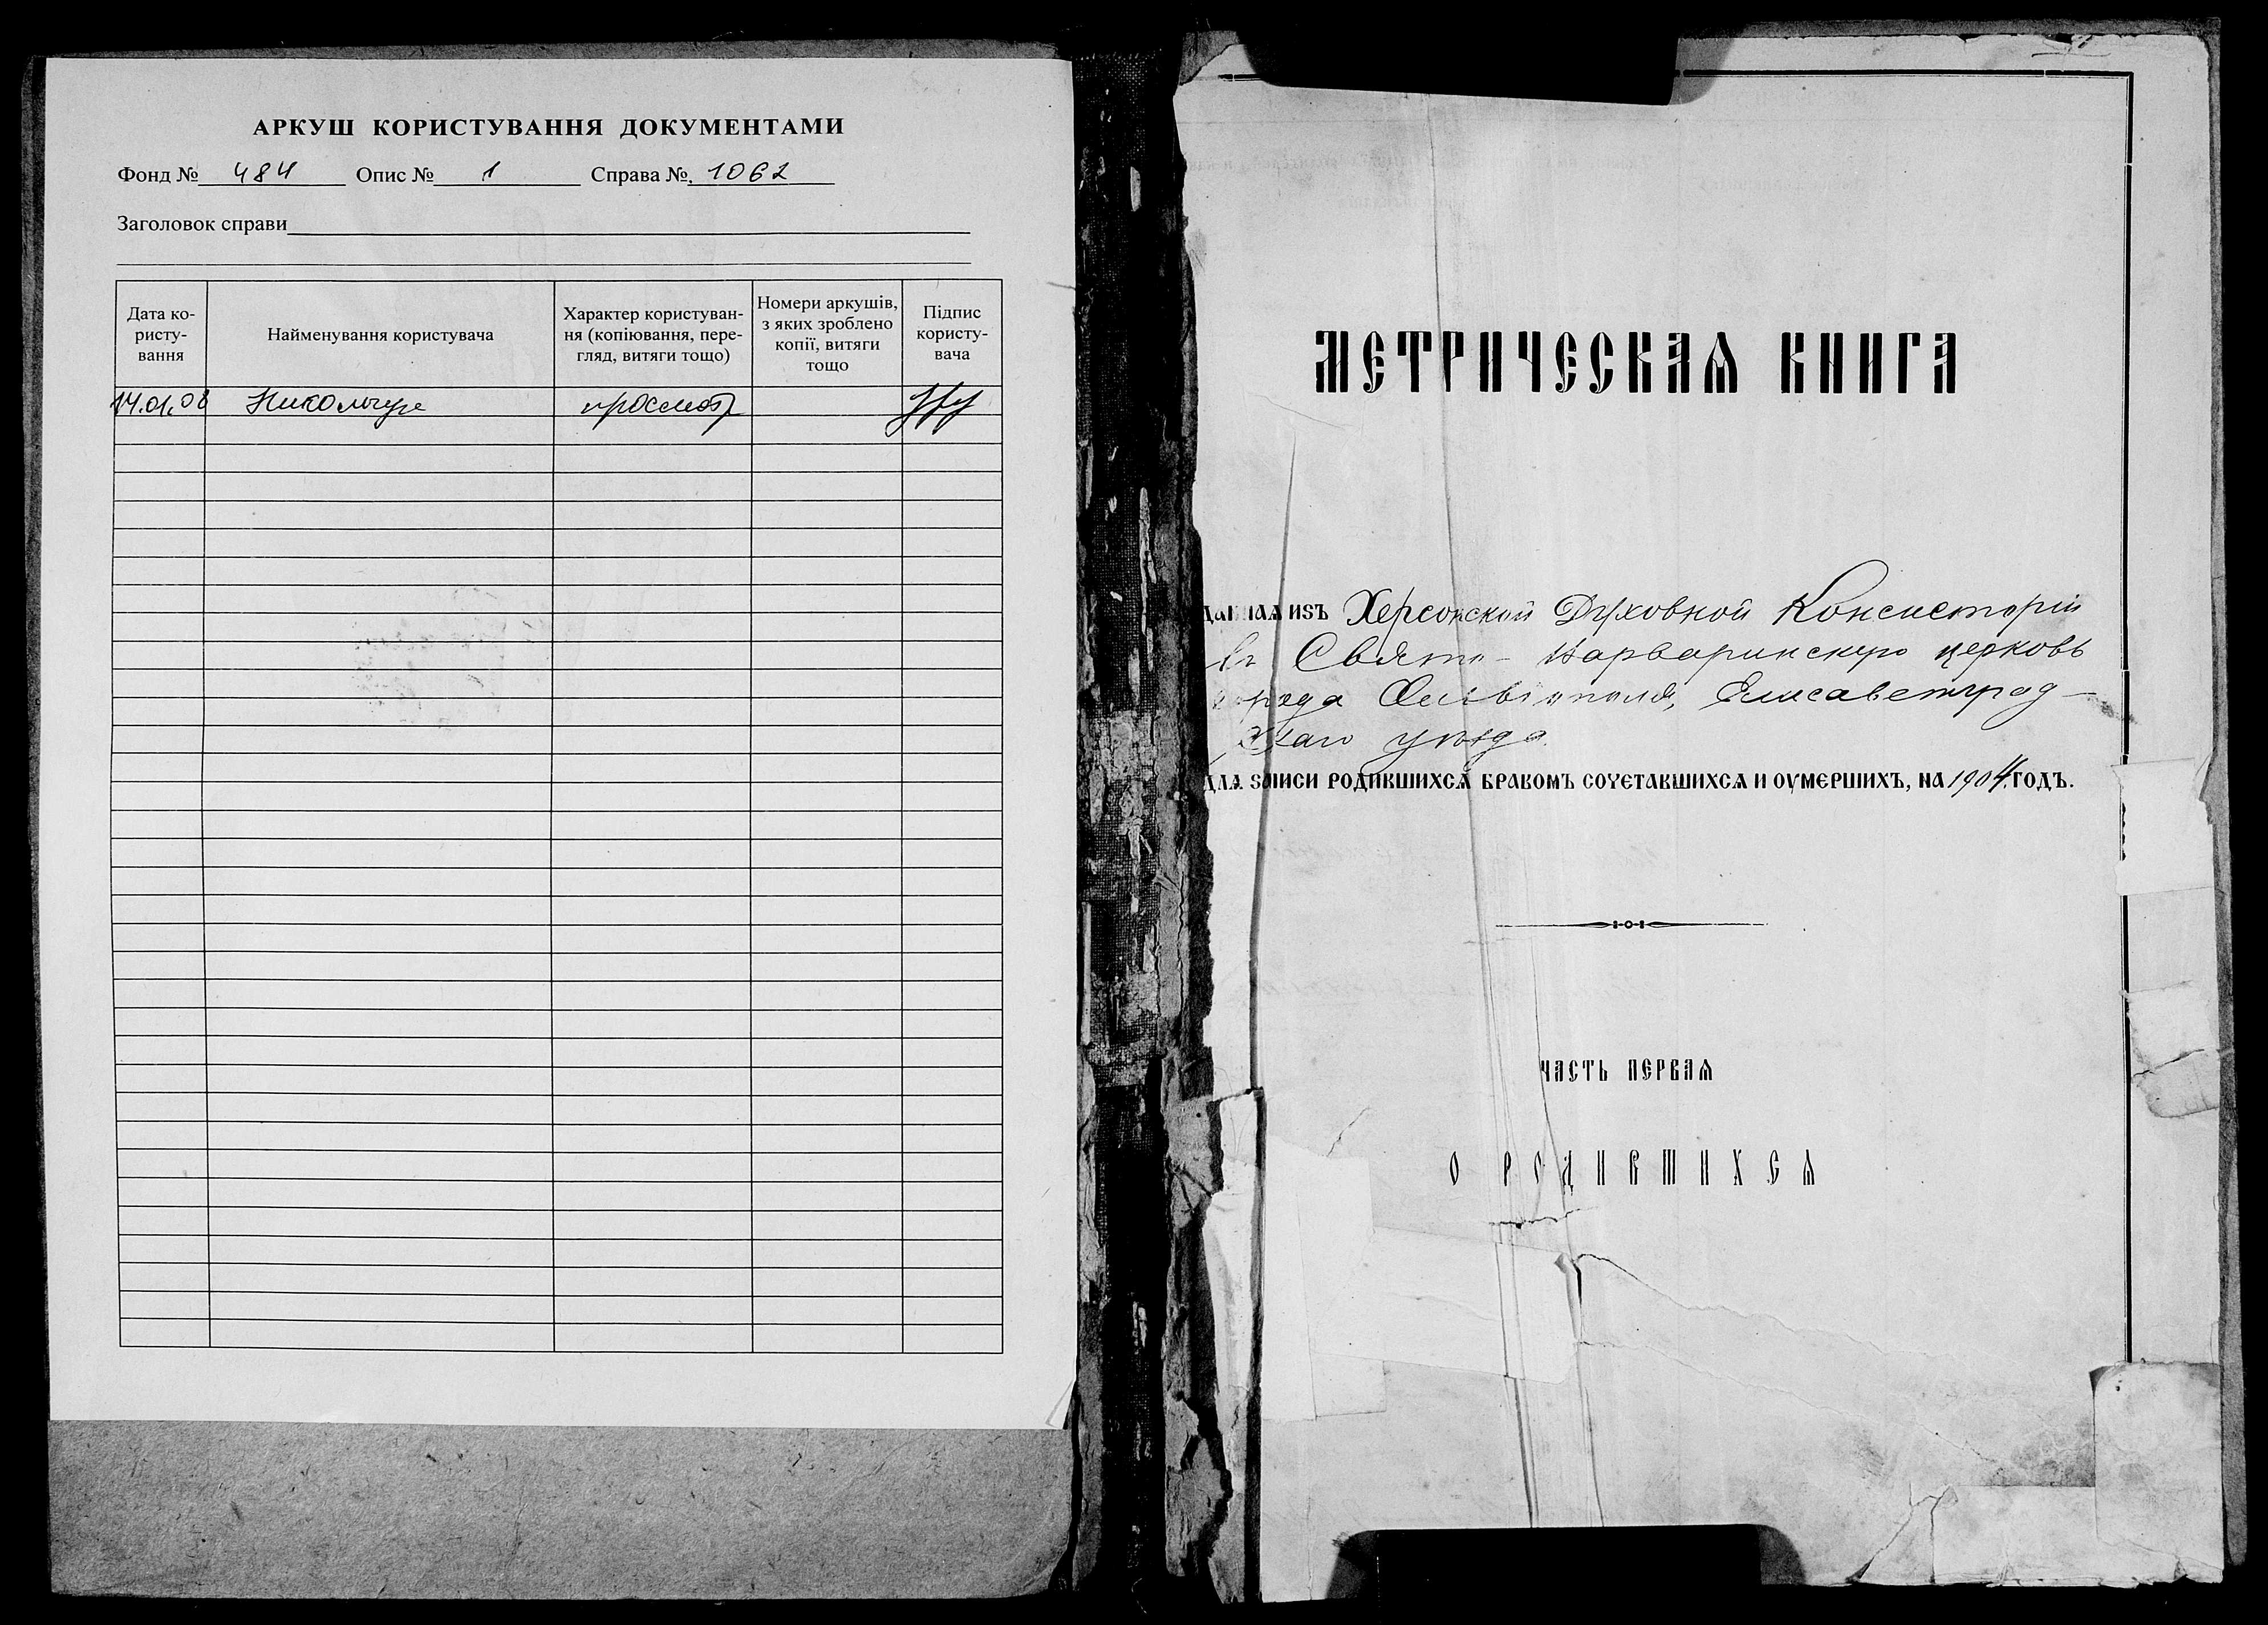 АРКУШ КОРИСТУВАННЯ ДОКУМЕНТАМИ
Фонд № 484 Опис № 1 Справа № 1062
Заголовок справи
Дата ко-
ристу-
вання
Найменування користувача
Характер користуван-
ня (копіювання, пере-
гляд, витяги тощо)
Номери аркушів,
з яких зроблено
копії, витяги
тощо
Підпис
користу-
вача
14.01.08 просмотр
МЕТРИЧЕСКАѦ КНИГА
ИЗЪ Херсонской Духовной Консисторіи
въ Свято-Варваринскую церковь
города Ольвіополя, Елисаветград-
скаго уѣзда
ДЛѦ ЗАПИСИ РОДИВШИХСѦ БРАКОМЪ СОЧЕТАВШИХСѦ И ОУМЕРШИХЪ, НА 1904 ГОДЪ.
ЧАСТЬ ПЕРВАѦ
О РОДИВШИХСѦ